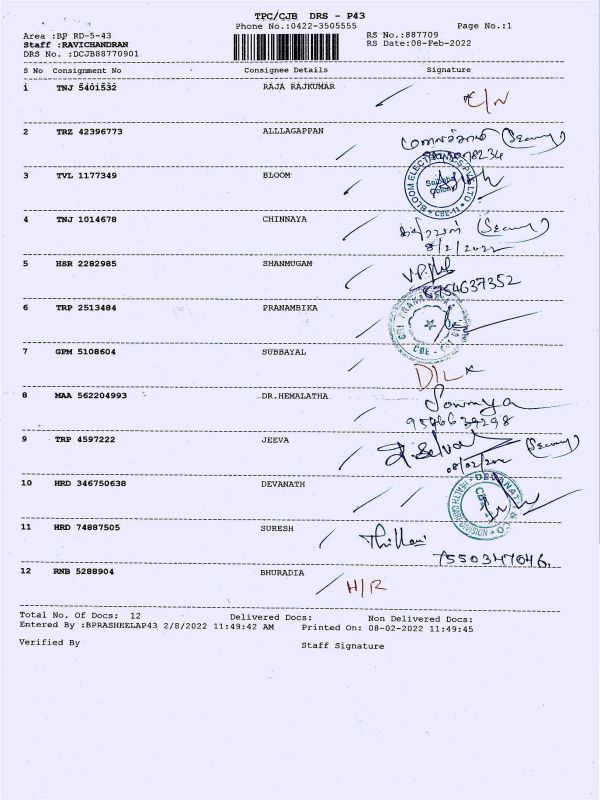 TPC/CJB DRS - P43
Phone No.:0422-3505555
Page No.:1
Area :BP RD-5-43
RS No.:887709
Staff :RAVICHANDRAN
RS Date:08-Feb-2022
DRS No. :DCJB88770901
S No Consignment No Consignee Details Signature
1 TNJ 5401532 RAJA RAJKUMAR
C/N
2 TRZ 42396773 ALLLAGAPPAN
3 TVL 1177349 BLOOM
BLOOM ELECTRONICS PVT LTD
Saibaba Colony
CBE-11
4 TNJ 1014678 CHINNAYA
8/2/2022
5 HSR 2282985 SHANMUGAM
6 TRP 2513484 PRANAMBIKA
CBE
7 GPM 5108604 SUBBAYAL
D/L
8 MAA 562204993 DR.HEMALATHA
Sowmya
9 TRP 4597222 JEEVA
10 HRD 346750638 DEVANATH
DEVANATH & CO
HEALTHCARE DIVISION
11 HRD 74887505 SURESH
7550347046.
12 RNB 5288904 BHURADIA
H/R
Total No. Of Docs: 12 Delivered Docs: Non Delivered Docs:
Entered By :BPRASHEELAP43 2/8/2022 11:49:42 AM Printed On: 08-02-2022 11:49:45
Verified By Staff Signature